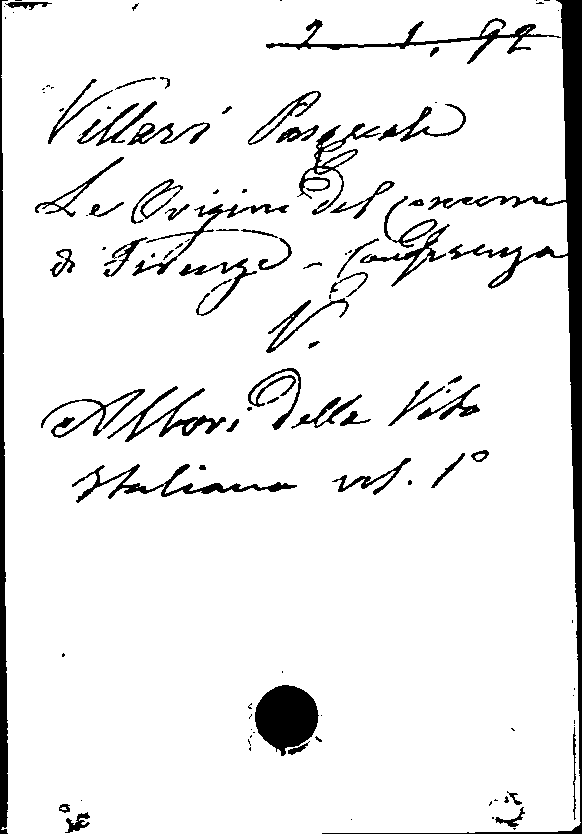 2. 1. 92
Villari Pasquale
Le Origini del comune
di Firenze - Conferenza
V.
Albori della Vita
Italiana vol. 1º